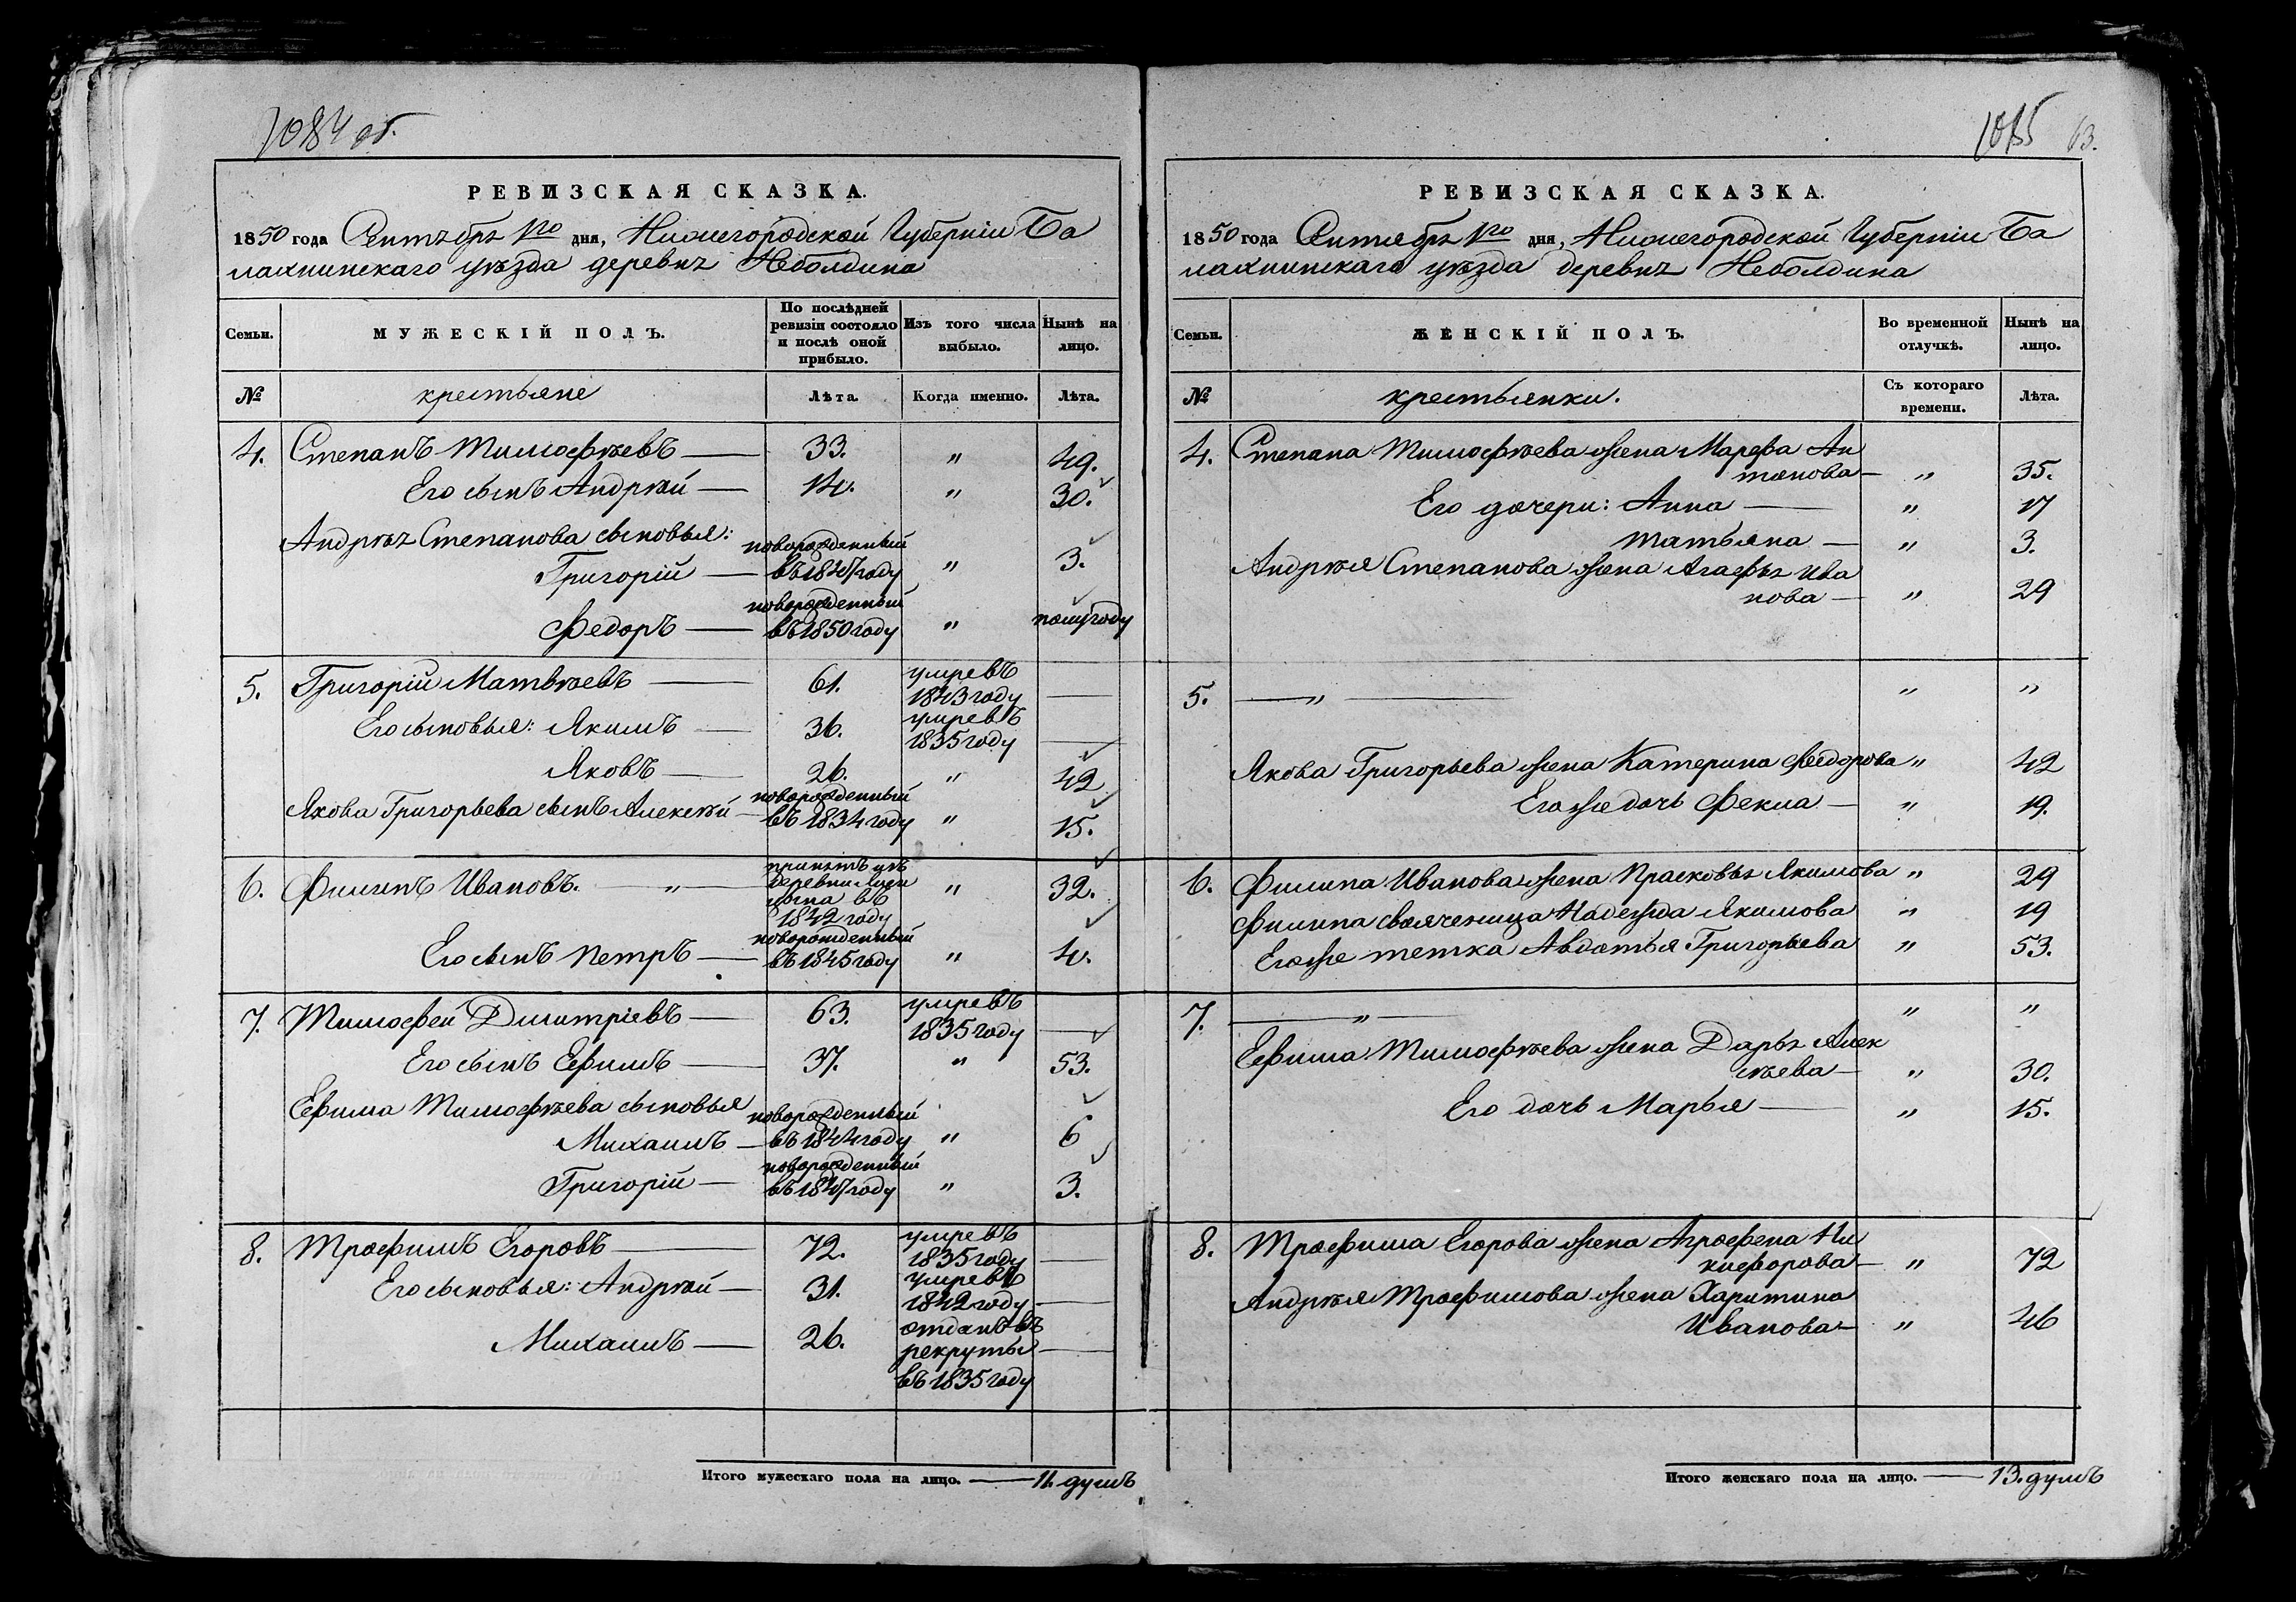 1084 об.
РЕВИЗСКАЯ СКАЗКА.
1850 года Сентября 1го дня, Нижегородской Губерніи Ба
лахнинскаго уѣзда деревни Неболдина
Семьи.
МУЖЕСКІЙ ПОЛЪ.
По послѣдней ревизіи состояло и послѣ оной прибыло.
Изъ того числа выбыло.
Нынѣ на лицо.
№ крестьяне Лѣта. Когда именно. Лѣта.
4. Степанъ Тимофѣевъ — 33. " 49.
Его сынъ Андрѣй — 14. " 30.
Андрѣя Степанова сыновья:
Григорій — новорожденный въ 1847 году " 3.
Федоръ — новорожденный въ 1850 году " полугоду
5. Григорій Матвѣевъ — 61. умревъ 1843 году —
Его сыновья: Якимъ — 36. умревъ 1835 году —
Яковъ — 26. " 42
Якова Григорьева сынъ Алексѣй — новорожденный въ 1834 году " 15.
6. Филипъ Ивановъ. — " — принятъ изъ деревни въ 1842 году " 32.
Его сынъ Петръ — новорожденный въ 1845 году " 4.
7. Тимофей Дмитріевъ — 63. умревъ 1835 году —
Его сынъ Ефимъ — 37. " 53.
Ефима Тимофѣева сыновья
Михаилъ — новорожденный въ 1844 году " 6
Григорій — новорожденный въ 1847 году " 3.
8. Трофимъ Егоровъ — 72. умревъ 1835 году —
Его сыновья: Андрѣй — 31. умревъ 1842 году —
Михаилъ — 26. отданъ въ рекруты въ 1835 году —
Итого мужескаго пола на лицо. — 11. душъ
1085 63.
РЕВИЗСКАЯ СКАЗКА.
1850 года Сентября 1го дня, Нижегородской Губерніи Ба
лахнинскаго уѣзда деревни Неболдина
Семьи.
ЖЕНСКІЙ ПОЛЪ.
Во временной отлучкѣ.
Нынѣ на лицо.
№ крестьянки. Съ котораго времени. Лѣта.
4. Степана Тимофѣева жена Марфа Ан
тонова — " 35.
Его дочери: Анна — " 17
Татьяна — " 3.
Андрѣя Степанова жена Агафья Ива
нова — " 29
5. — " — " "
Якова Григорьева жена Катерина Федорова " 42
Его же дочь Фекла — " 19.
6. Филипа Иванова жена Прасковья Якимова " 29
Филипа свояченица Надежда Якимова " 19
Его же тетка Авдотья Григорьева " 53.
7. — " — " "
Ефима Тимофѣева жена Дарья Алек
сѣева — " 30.
Его дочь Марья — " 15.
8. Трофима Егорова жена Агрофена Ни
кифорова — " 72
Андрѣя Трофимова жена Харитина
Иванова — " 46
Итого женскаго пола на лицо. — 13. душъ